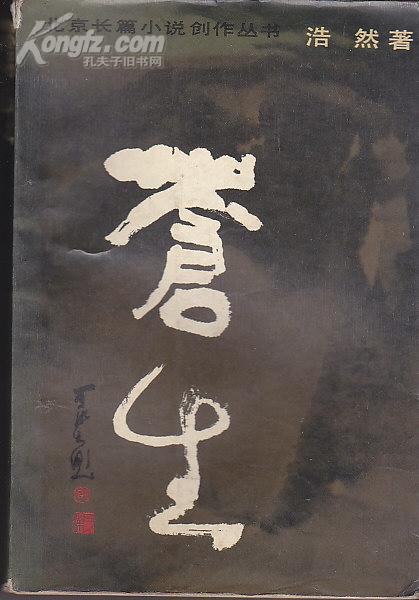 北京长篇小说创作丛书
浩然著
Kongfz.com
孔夫子旧书网
蒼生